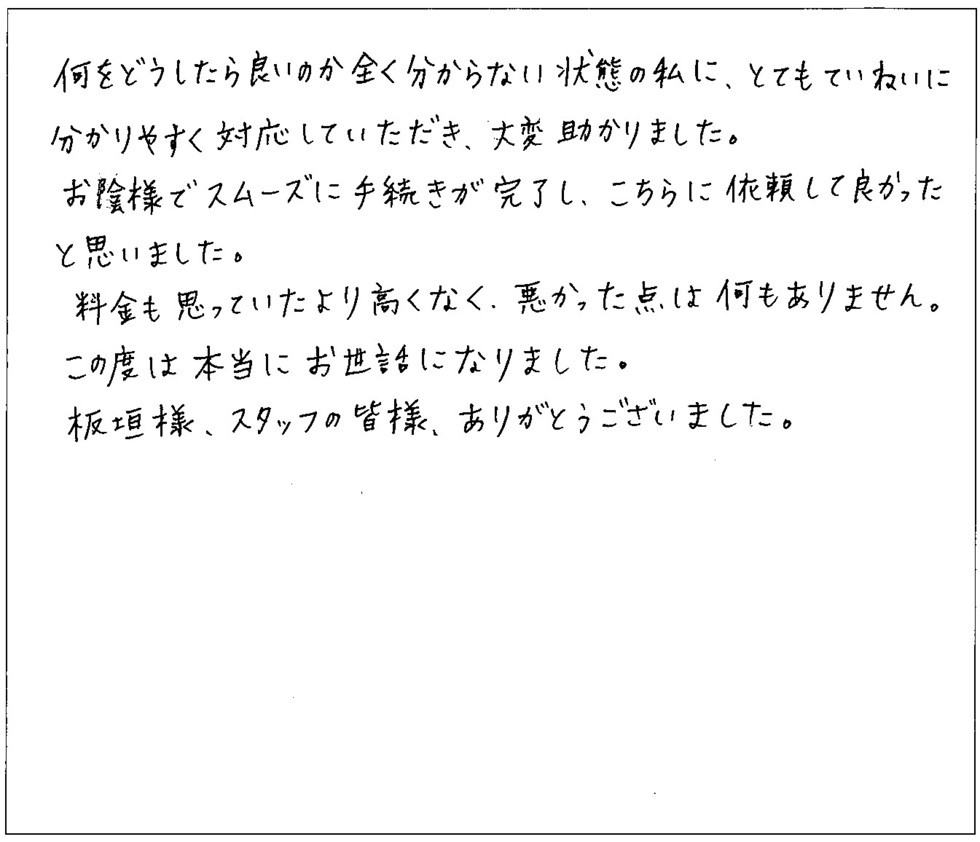 何をどうしたら良いのか全く分からない状態の私に、とてもていねいに
分かりやすく対応していただき、大変助かりました。
お陰様でスムーズに手続きが完了し、こちらに依頼して良かった
と思いました。
料金も思っていたより高くなく、悪かった点は何もありません。
この度は本当にお世話になりました。
板垣様、スタッフの皆様、ありがとうございました。